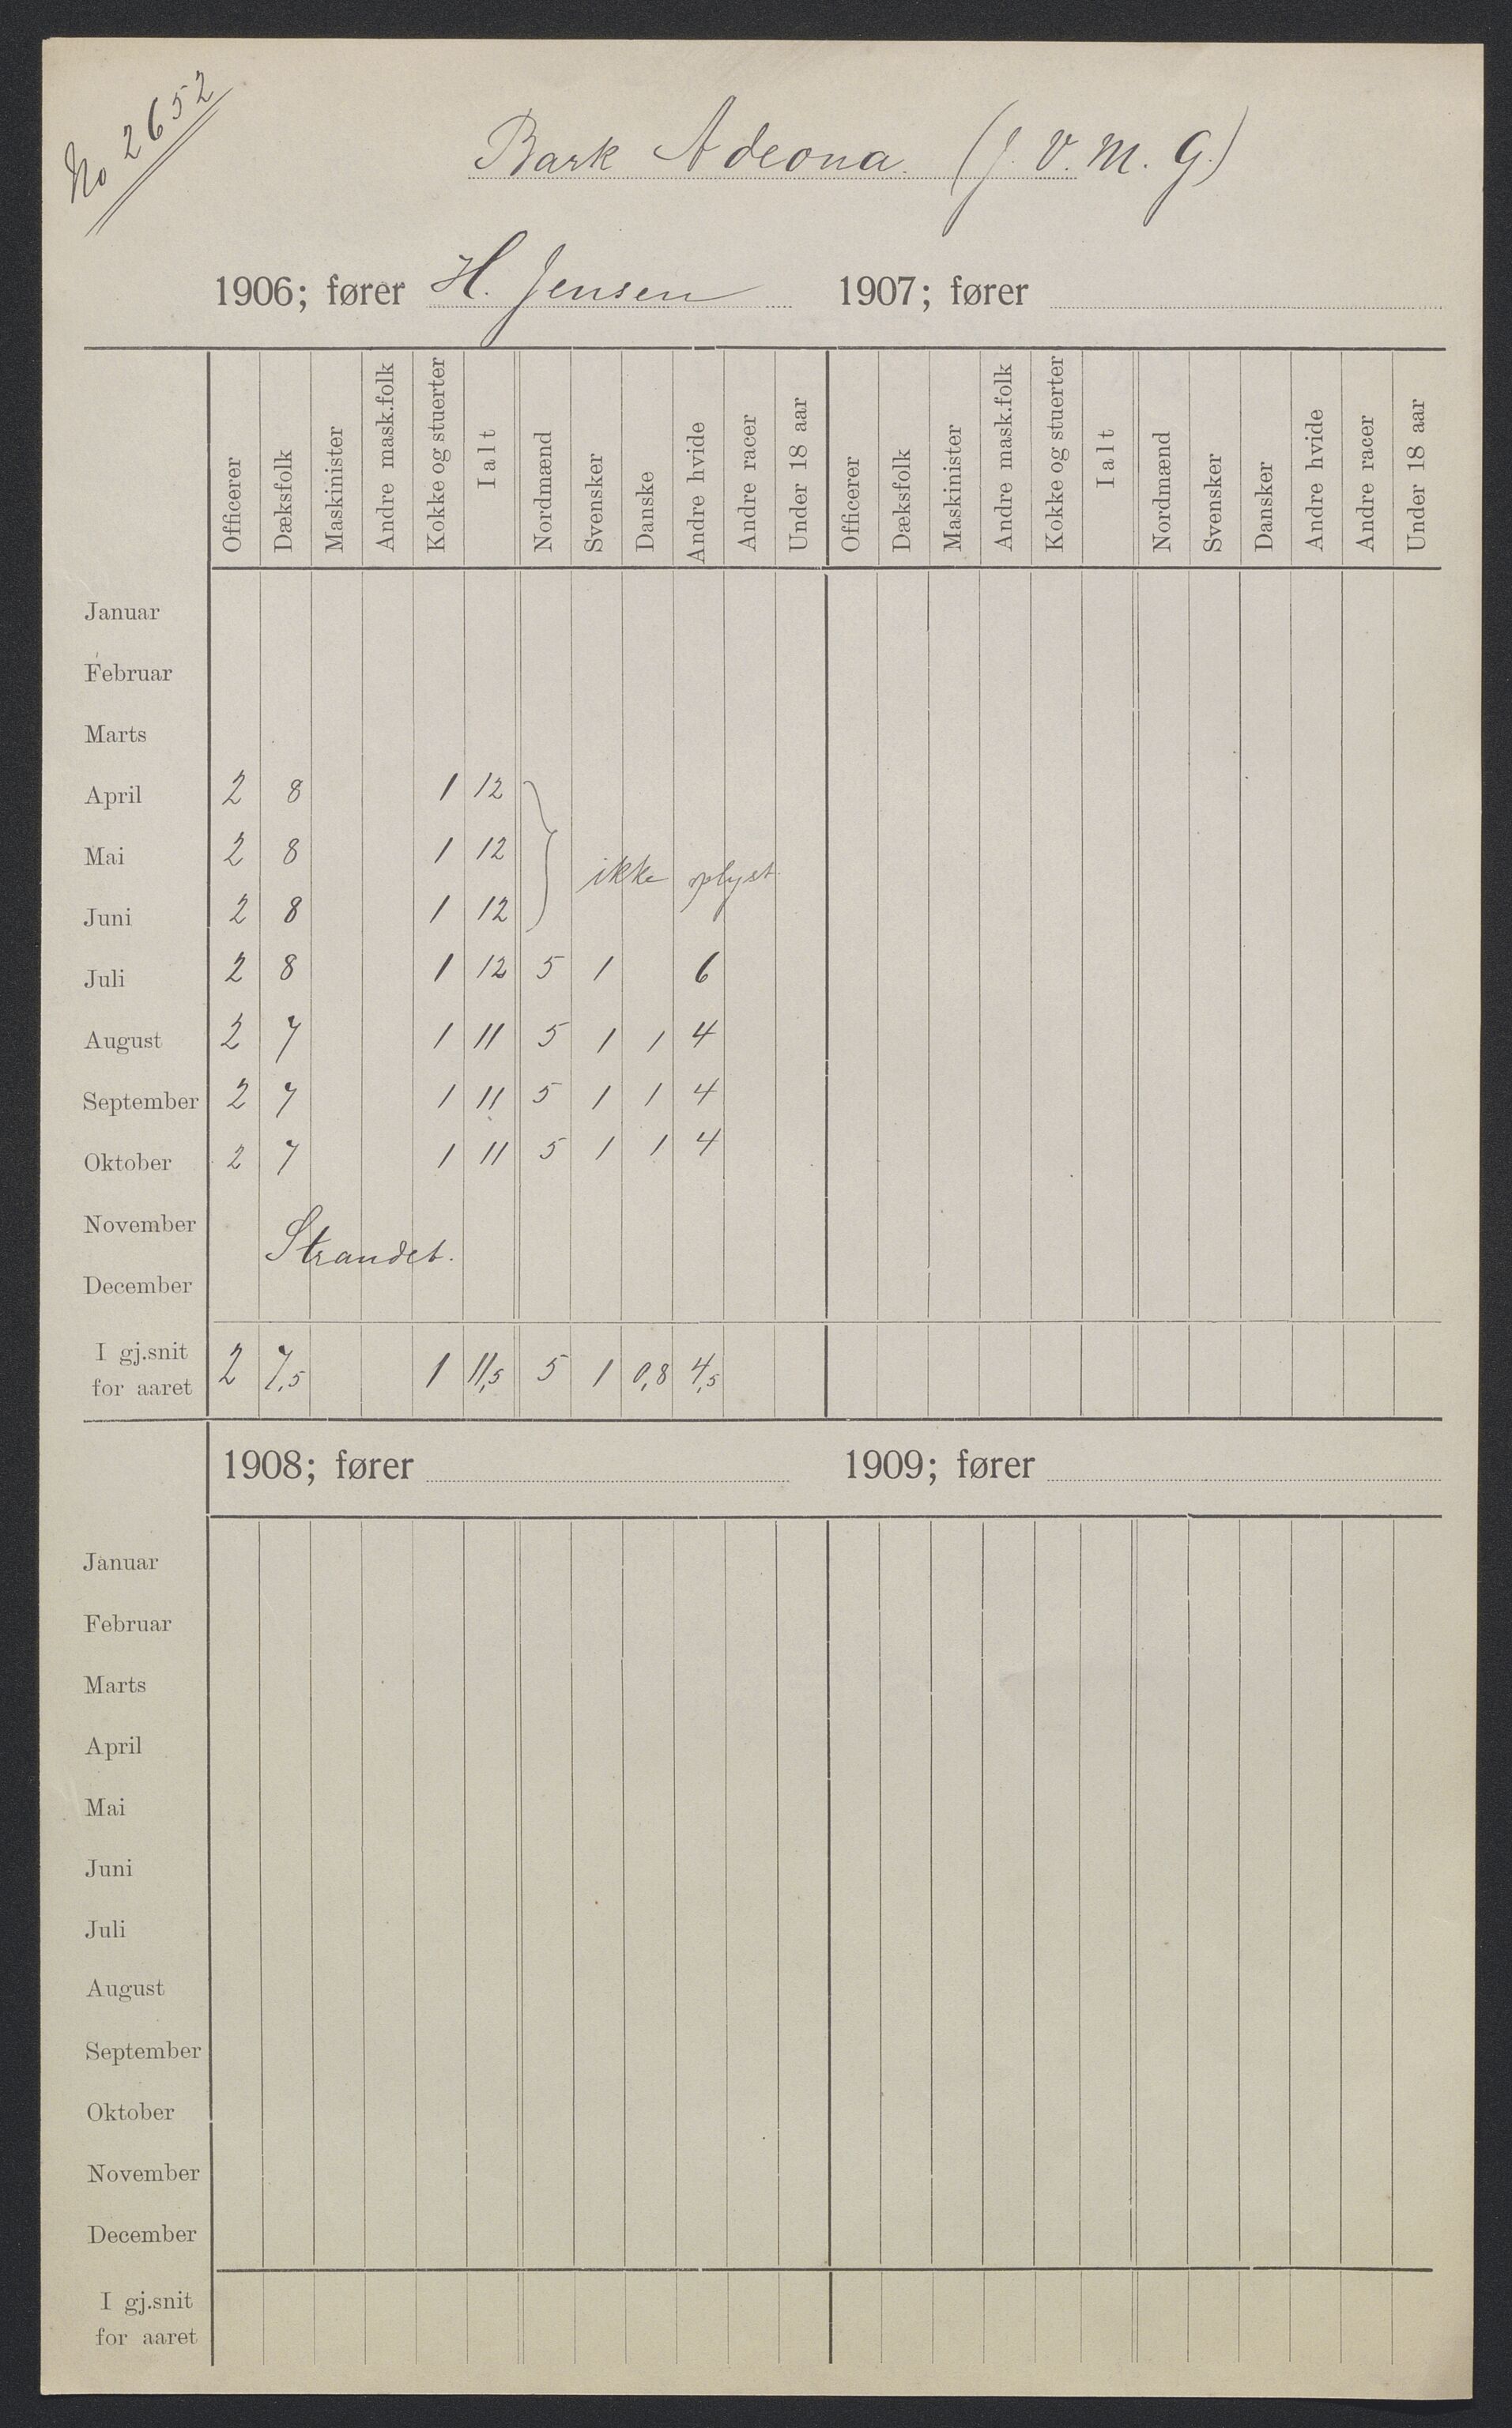 No 2652
Bark Adeona. (J. V. M. G.)
1906; fører H. Jensen 1907; fører
Officerer Dæksfolk Maskinister Andre mask.folk Kokke og stuerter Ialt Nordmænd Svensker Danske Andre hvide Andre racer Under 18 aar Officerer Dæksfolk Maskinister Andre mask.folk Kokke og stuerter Ialt Nordmænd Svensker Dansker Andre hvide Andre racer Under 18 aar
Januar
Februar
Marts
April 2 8 1 12
Mai 2 8 1 12
ikke oplyst.
Juni 2 8 1 12
Juli 2 8 1 12 5 1 6
August 2 7 1 11 5 1 1 4
September 2 7 1 11 5 1 1 4
Oktober 2 7 1 11 5 1 1 4
November
Strandet.
December
I gj.snit
for aaret 2 7,5 1 11,5 5 1 0,8 4,5
1908; fører 1909; fører
Januar
Februar
Marts
April
Mai
Juni
Juli
August
September
Oktober
November
December
I gj.snit
for aaret